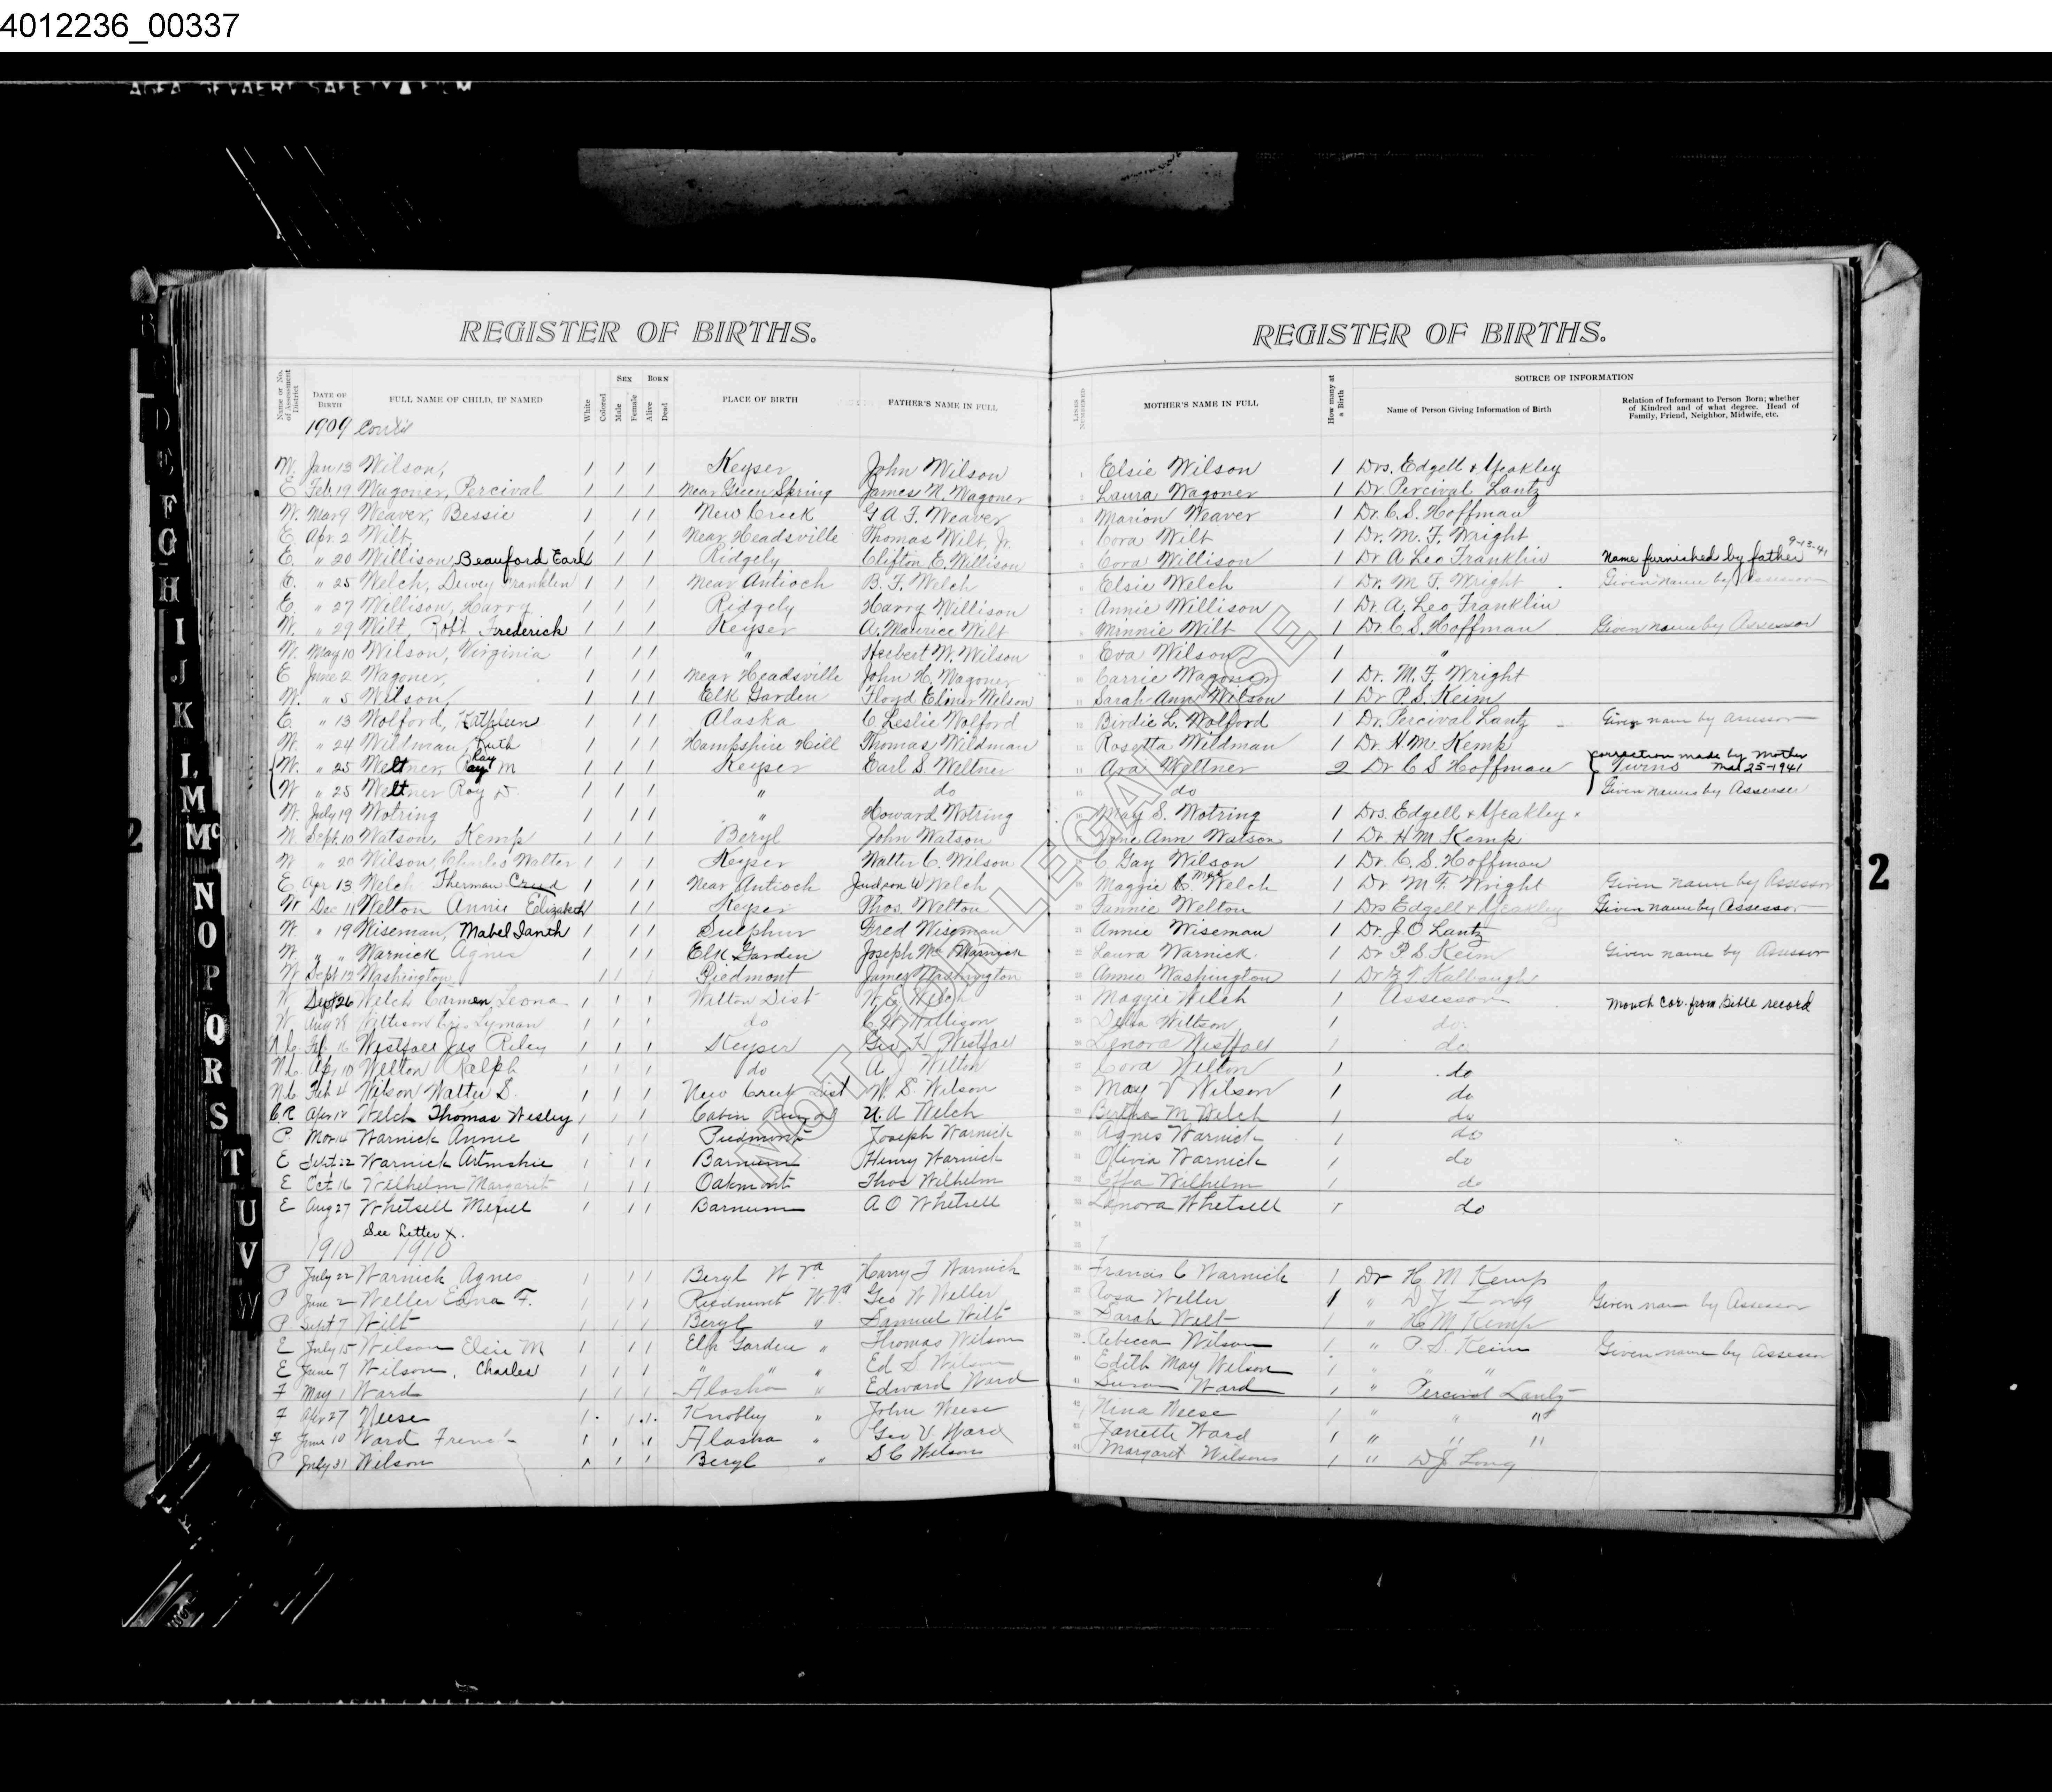 4012236_00337
REGISTER OF BIRTHS.
REGISTER OF BIRTHS.
Name or No. of Assessment District
DATE OF BIRTH
FULL NAME OF CHILD, IF NAMED
White
Colored
SEX
Male
Female
BORN
Alive
Dead
PLACE OF BIRTH
FATHER'S NAME IN FULL
LINES NUMBERED
MOTHER'S NAME IN FULL
How many at a Birth
SOURCE OF INFORMATION
Name of Person Giving Information of Birth
Relation of Informant to Person Born; whether of Kindred and of what degree. Head of Family, Friend, Neighbor, Midwife, etc.
1909
W. Jan 13 Wilson, 1 1 1 Keyser John Wilson Elsie Wilson 1 Drs. Edgell & Yeakley
E Feb. 19 Wagoner, Percival 1 1 1 Near Green Spring James N. Wagoner Laura Wagoner 1 Dr Percival Lantz
W. Mar 9 Weaver, Bessie 1 1 1 New Creek G A. F. Weaver Marion Weaver 1 Dr. C. S. Hoffman
E Apr. 2 Wilt, 1 1 1 Near Headsville Thomas Wilt, Jr. Cora Wilt 1 Dr. M. F. Wright
E. " 20 Willison, Beauford Earl 1 1 1 Ridgely Clifton E. Willison Cora Willison 1 Dr A Leo Franklin Name furnished by father 9-13-41
E. " 25 Welch, Dewey Franklin 1 1 1 Near Antioch B. F. Welch Elsie Welch 1 Dr. M. F. Wright Given name by Assessor
E. " 27 Willison, Harry 1 1 1 Ridgely Harry Willison Annie Willison 1 Dr. A. Leo Franklin
W. " 29 Wilt, Robt. Frederick 1 1 1 Keyser A. Maurice Wilt Minnie Wilt 1 Dr. C. S. Hoffman Given name by Assessor
W. May 10 Wilson, Virginia 1 1 1 " Herbert W. Wilson Eva Wilson 1 "
E June 2 Wagoner, 1 1 1 Near Headsville John H. Wagoner Carrie Wagoner 1 Dr. M. F. Wright
W. " 5 Wilson, 1 1 1 Elk Garden Floyd Elmer Wilson Sarah Ann Wilson 1 Dr P. S. Keim
E. " 13 Wolford, Kathleen 1 1 1 Alaska C Leslie Wolford Birdie L. Wolford 1 Dr. Percival Lantz Given name by assessor
W. " 24 Wildman, Ruth 1 1 1 Hampshire Hill Thomas Wildman Rosetta Wildman 1 Dr. H. M. Kemp
W. " 25 Weltner, Ray M 1 1 1 Keyser Earl S. Weltner Ara Weltner 2 Dr C S Hoffman Twins correction made by Mother Mar 25-1941
W " 25 Weltner Roy D. 1 1 1 " do do Given names by Assessor
W. July 19 Wotring 1 1 1 " Howard Wotring May S. Wotring 1 Drs. Edgell & Yeakley
W. Sept. 10 Watson, Kemp 1 1 1 Beryl John Watson Ann Watson 1 Dr. H M. Kemp
W " 20 Wilson, Charles Walter 1 1 1 Keyser Walter C. Wilson C Gay Wilson 1 Dr. C. S. Hoffman
E Apr 13 Welch Therman Creed 1 1 1 Near Antioch Judson W Welch Maggie Welch 1 Dr M F. Wright Given name by Assessor
W Dec 11 Welton Annie Elizabeth 1 1 1 Keyser Thos. Welton Fannie Welton 1 Drs Edgell & Yeakley Given name by Assessor
W. " 19 Wiseman, Mabel Ianth 1 1 1 Sulphur Fred Wiseman Annie Wiseman 1 Dr. J. O Lantz
W. " " Warnick Agnes 1 1 1 Elk Garden Joseph Warnick Laura Warnick. 1 Dr P. S. Keim Given name by Assessor
W Sept 12 Washington 1 1 Piedmont James Washington Annie Washington 1 Dr Z. T. Kalbaugh
W Sept 26 Welch Carmen Leona 1 1 1 Welton Dist W. E Welch Maggie Welch 1 Assessor Month cor. from Bible record
W Aug 28 Lyman 1 1 1 do Willison Della 1 do
Feb. 16 Westfall Jas Riley 1 1 1 Keyser Geo. H Westfall Lenora Westfall 1 do
N.C. Apr 10 Welton Ralph 1 1 1 do A J Welton Cora Welton 1 do
N.C. Feb 4 Wilson Walter S. 1 1 1 New Creek Dist W. S. Wilson May V Wilson 1 do
C R Apr 12 Welch Thomas Wesley 1 1 1 Cabin Run U. A Welch Bertha M Welch 1 do
P. Mar 14 Warnick Annie 1 1 1 Piedmont Joseph Warnick Agnes Warnick 1 do
E Sept 22 Warnick 1 1 1 Barnum Henry Warnick Olivia Warnick 1 do
E Oct 16 Wilhelm Margaret 1 1 1 Oakmont Thos Wilhelm Effa Wilhelm 1 do
E Aug 27 Whetsell 1 1 1 Barnum A O Whetsell Lenora Whetsell 1 do
See Letter X.
1910 1910
P July 22 Warnick Agnes 1 1 1 Beryl W Va Harry F Warnick Francis C Warnick 1 Dr H. M Kemp
P June 2 Weller Edna F. 1 1 1 Piedmont W Va Geo W Weller Rosa Weller 1 " Long Given name by Assessor
P Sept 7 Wilt 1 1 1 Beryl " Samuel Wilt Sarah Wilt 1 " H M Kemp
E July 15 Wilson Elsie M 1 1 1 Elk Garden " Thomas Wilson Rebecca Wilson 1 " P. S. Keim Given name by Assessor
E June 7 Wilson, Charles 1 1 1 " " Ed S Wilson Edith May Wilson 1 " "
F May 1 Ward 1 1 1 Alaska " Edward Ward Susan Ward 1 " Percival Lantz
F Apr 27 Weese 1 1 1 Knobley " John Weese Nina Weese 1 " " "
F June 10 Ward 1 1 1 Alaska " Geo V Ward Janette Ward 1 " " "
P July 31 Wilson 1 1 1 Beryl " S C Wilson Margaret Wilson 1 " Long
NOT FOR LEGAL USE
B
D
E
F
G
H
I
J
K
L
M
Mc
N
O
P
Q
R
S
T
U
V
W
2
2